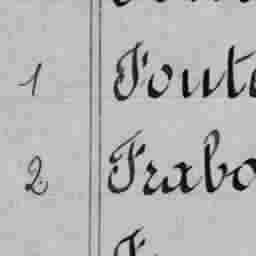 1 Foute
2 Frabo